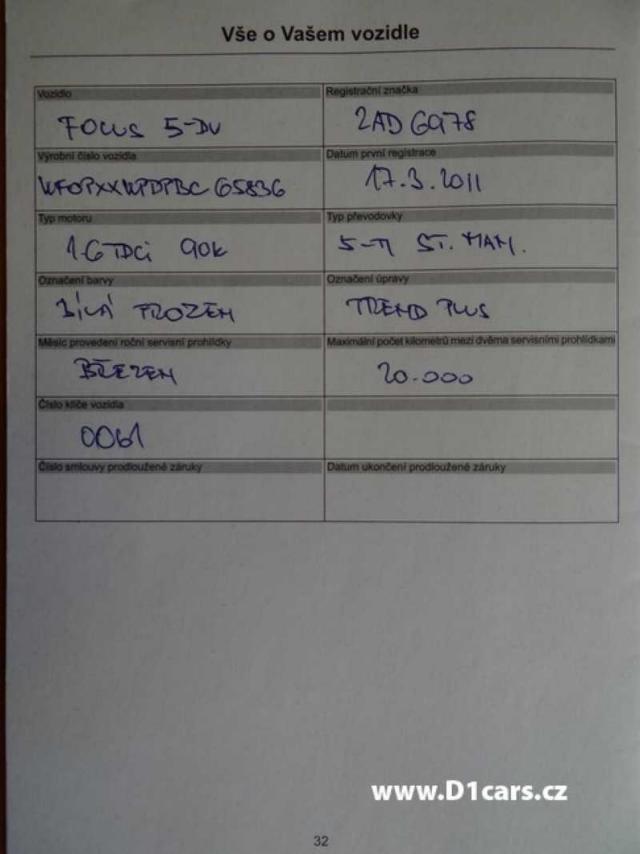 Vše o Vašem vozidle
Vozidlo
Registrační značka
FOCUS 5-DV
2AD 6978
Výrobní číslo vozidla
Datum první registrace
WF0PXXWPDPBC65836
17.3.2011
Typ motoru
Typ převodovky
1.6 TDCi 90k
5-TI ST. MAN.
Označení barvy
Označení úpravy
BÍLÁ FROZEN
TREND PLUS
Měsíc provedení roční servisní prohlídky
Maximální počet kilometrů mezi dvěma servisními prohlídkami
BŘEZEN
20.000
Číslo klíče vozidla
0061
Číslo smlouvy prodloužené záruky
Datum ukončení prodloužené záruky
www.D1cars.cz
32